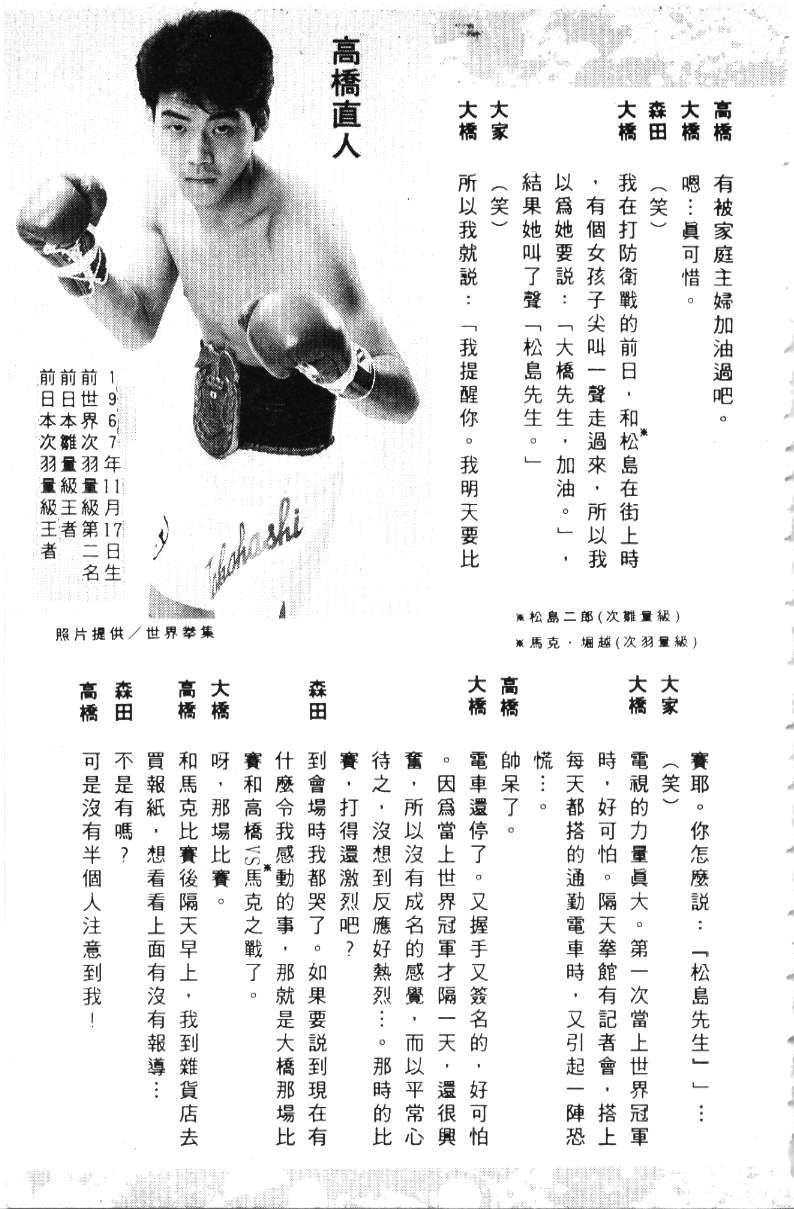 高橋　有被家庭主婦加油過吧。
大橋　嗯…眞可惜。
森田　（笑）
大橋　我在打防衛戰的前日，和松島※在街上時
，有個女孩子尖叫一聲走過來，所以我
以爲她要說：「大橋先生，加油。」，
結果她叫了聲「松島先生。」
大家　（笑）
大橋　所以我就說：「我提醒你。我明天要比
高橋直人
1967年11月17日生
前世界次羽量級第二名
前日本雛量級王者
前日本次羽量級王者
Takahashi
照片提供／世界拳集
※松島二郎(次雛量級)
※馬克·堀越(次羽量級)
賽耶。你怎麼說：『松島先生』」…
大家　（笑）
大橋　電視的力量眞大。第一次當上世界冠軍
時，好可怕。隔天拳館有記者會，搭上
每天都搭的通勤電車時，又引起一陣恐
慌…。
高橋　帥呆了。
大橋　電車還停了。又握手又簽名的，好可怕
。因爲當上世界冠軍才隔一天，還很興
奮，所以沒有成名的感覺，而以平常心
待之，沒想到反應好熱烈…。那時的比
賽，打得還激烈吧？
森田　到會場時我都哭了。如果要說到現在有
什麼令我感動的事，那就是大橋那場比
賽和高橋VS馬克※之戰了。
大橋　呀，那場比賽。
高橋　和馬克比賽後隔天早上，我到雜貨店去
買報紙，想看看上面有沒有報導…
森田　不是有嗎？
高橋　可是沒有半個人注意到我！